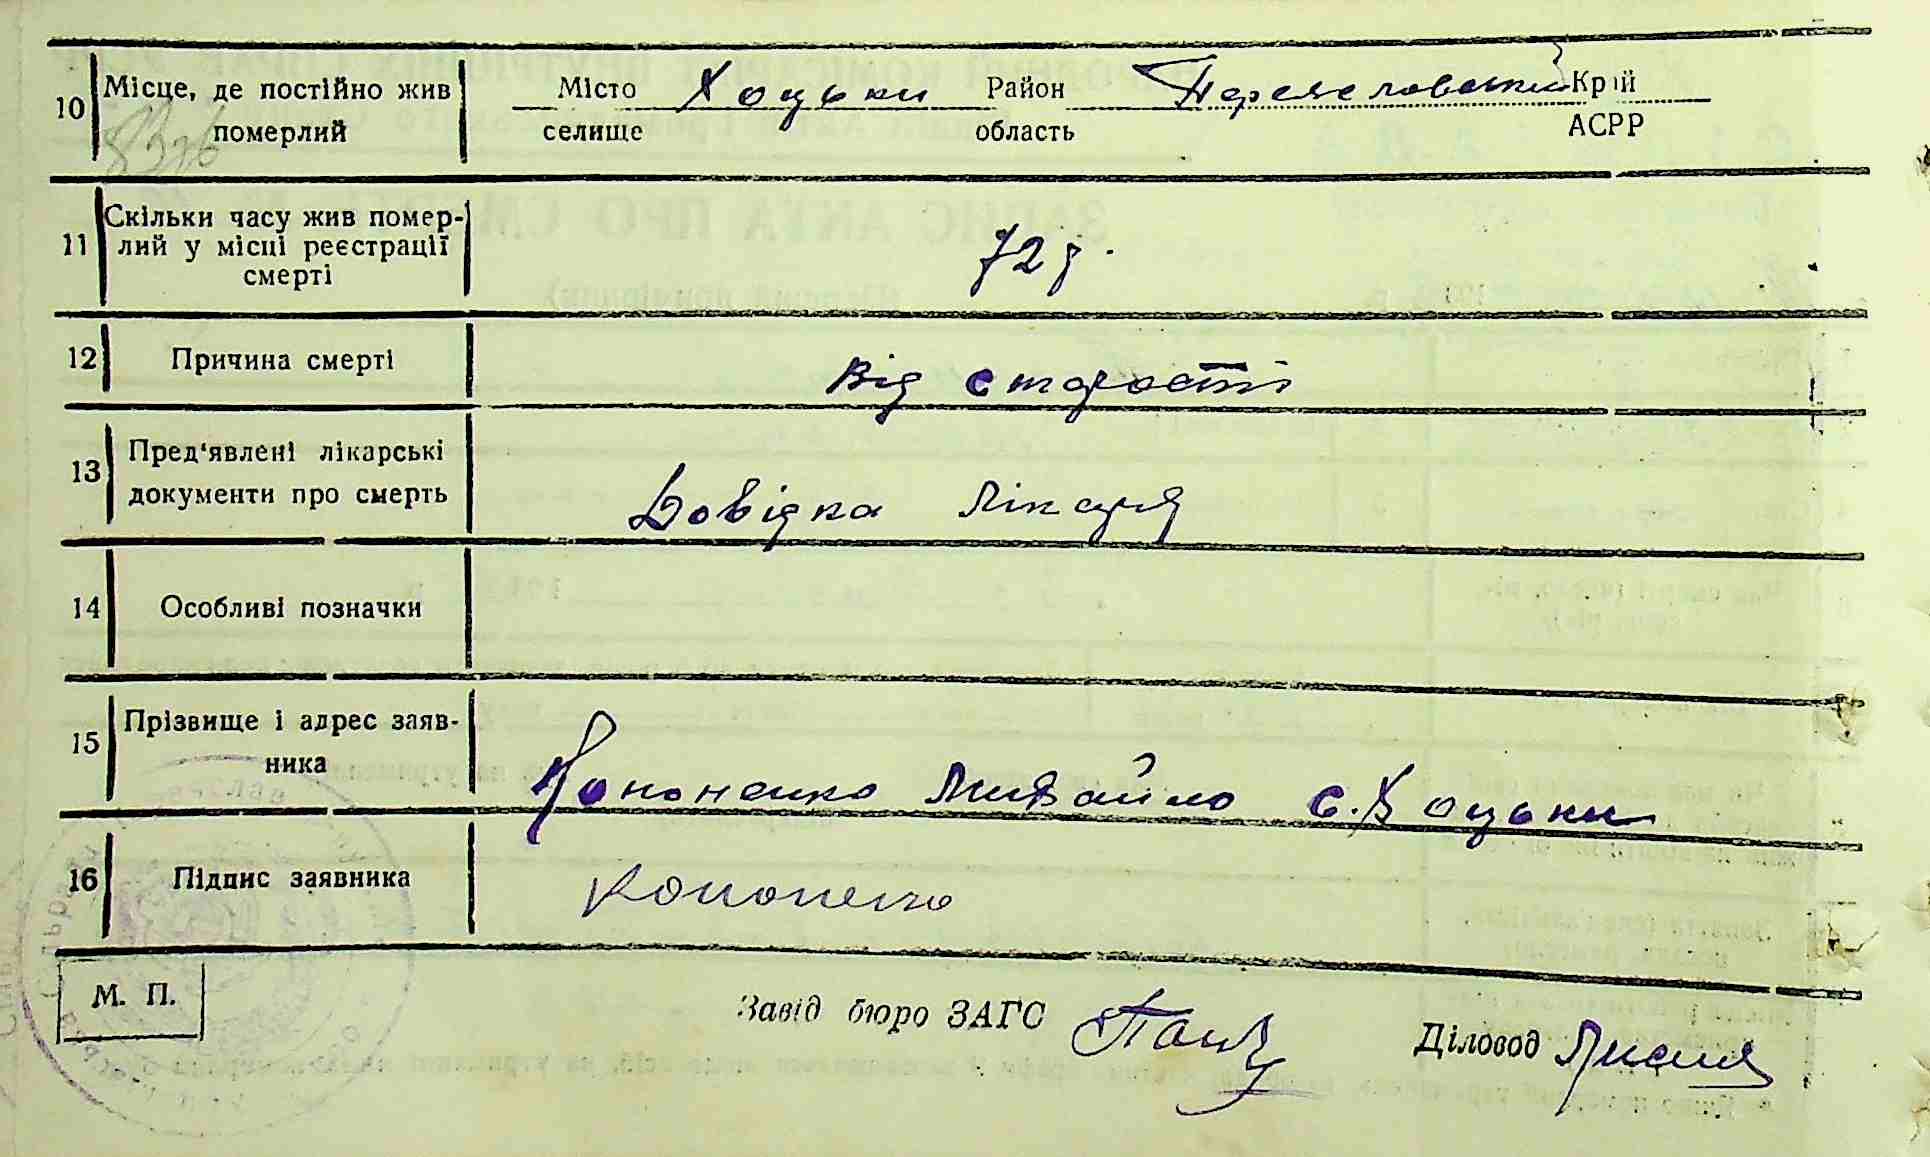 10 Місце, де постійно жив померлий
Місто селище Хоцьки Район область Переяславський Край АСРР
11 Скільки часу жив помер-
лий у місці реєстрації
смерті
72 р.
12 Причина смерті
від старості
13 Пред'явлені лікарські
документи про смерть
Довідка лікаря
14 Особливі позначки
15 Прізвище і адрес заяв-
ника
Кононенко Михайло с. Хоцьки
16 Підпис заявника
Кононенко
М. П.
Завід бюро ЗАГС
Діловод